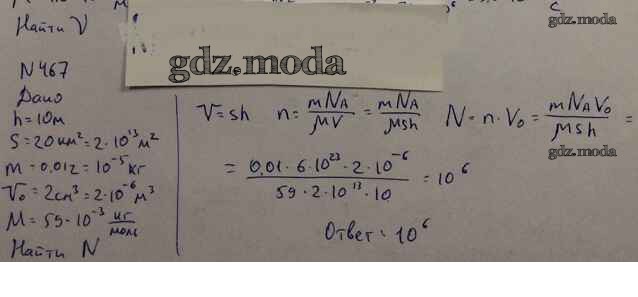 Найти V
gdz.moda
gdz.moda
N 467
Дано
h=10м
S=20км²=2·10¹³м²
m=0,01г=10⁻⁵кг
V₀=2см³=2·10⁻⁶м³
M=59·10⁻³ кг/моль
Найти N
V=sh n= mNA/μV = mNA/μsh N=n·V₀= mNAV₀/μsh =
gdz.moda
= 0,01·6·10²³·2·10⁻⁶ / 59·2·10¹³·10 = 10⁶
Ответ: 10⁶